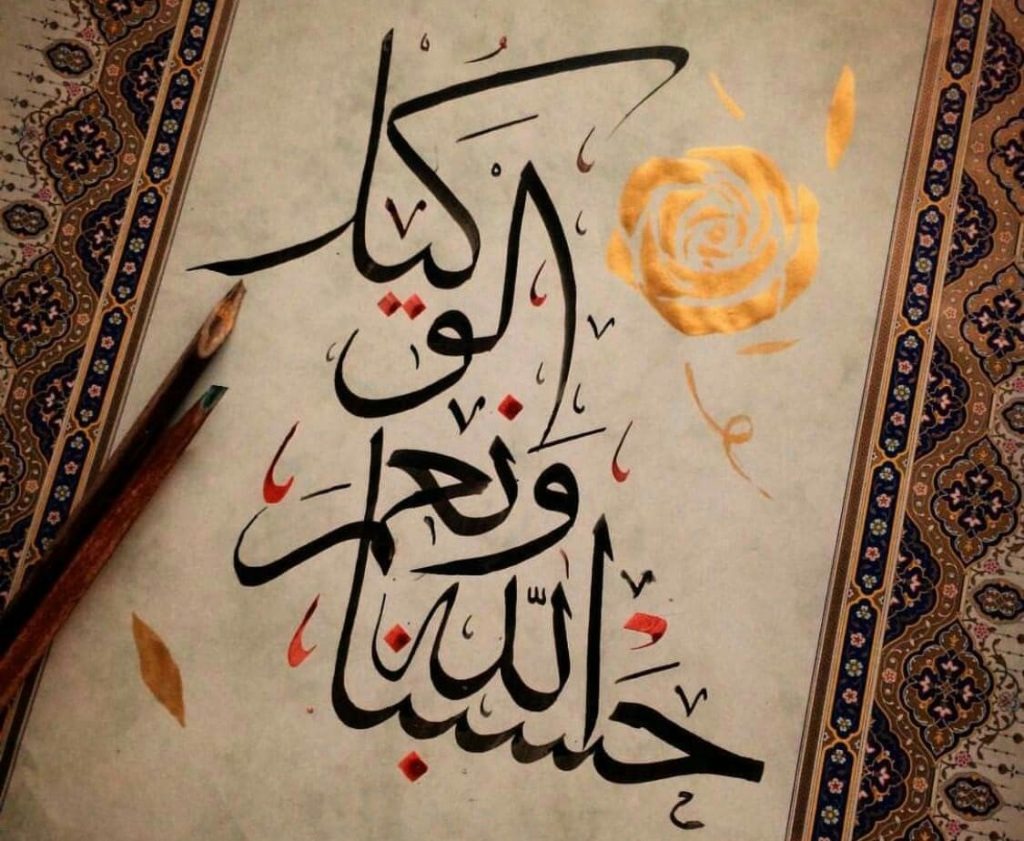 حَسبنا الله
وَنعم
الوكيل